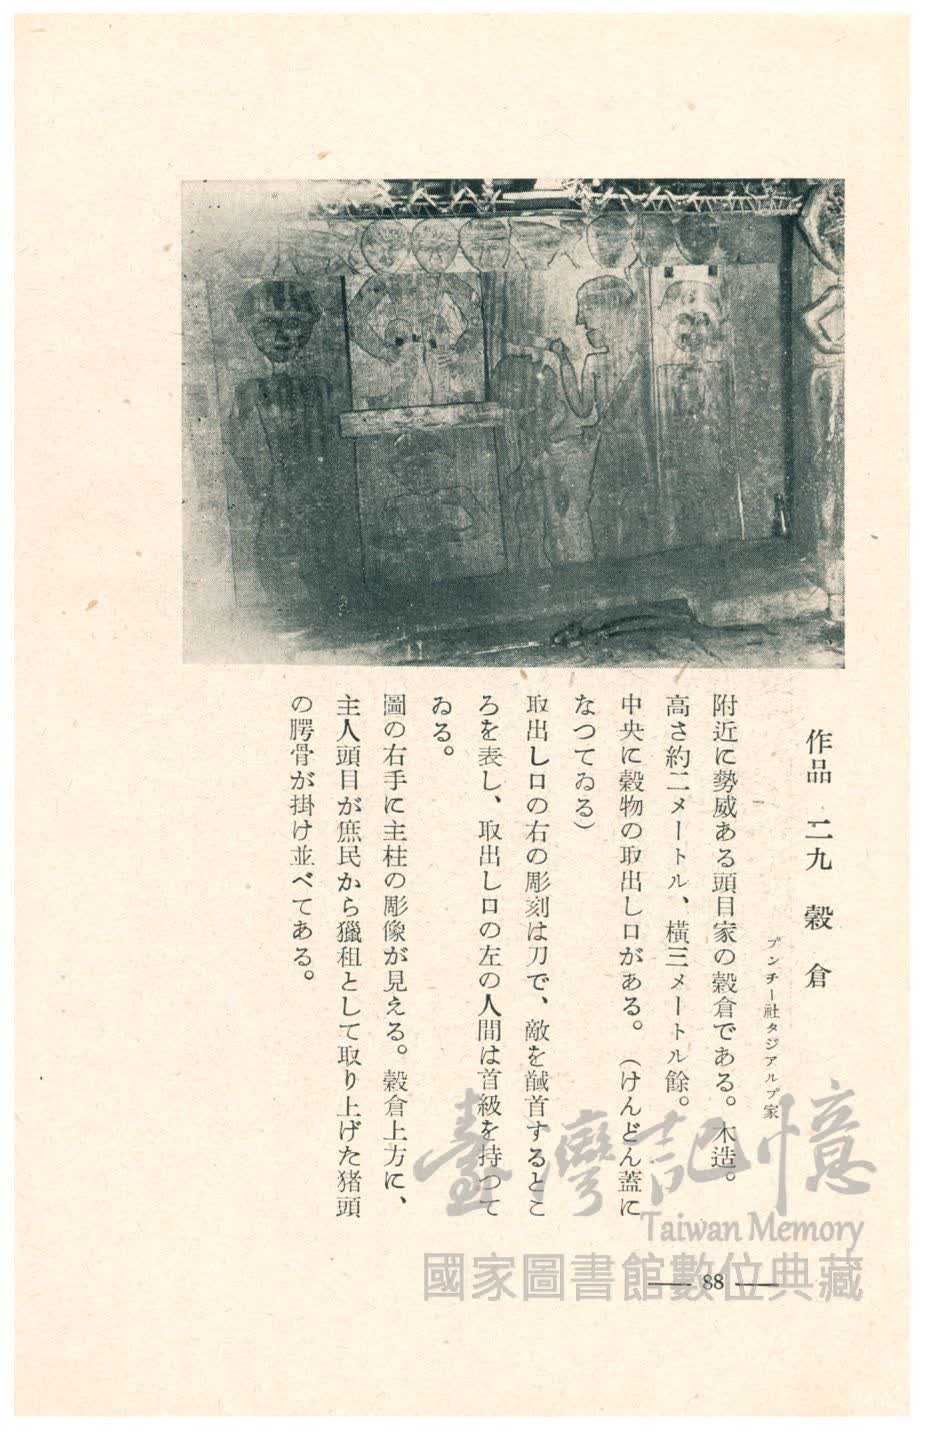 作品 二九 穀倉
プンチー社タジアルプ家
附近に勢威ある頭目家の穀倉である。木造。
高さ約二メートル、橫三メートル餘。
中央に穀物の取出し口がある。（けんどん蓋に
なつてゐる）
取出し口の右の彫刻は刀で、敵を馘首するとこ
ろを表し、取出し口の左の人間は首級を持つて
ゐる。
圖の右手に主柱の彫像が見える。穀倉上方に、
主人頭目が庶民から獵租として取り上げた猪頭
の腭骨が掛け並べてある。
88
臺灣記憶
Taiwan Memory
國家圖書館數位典藏